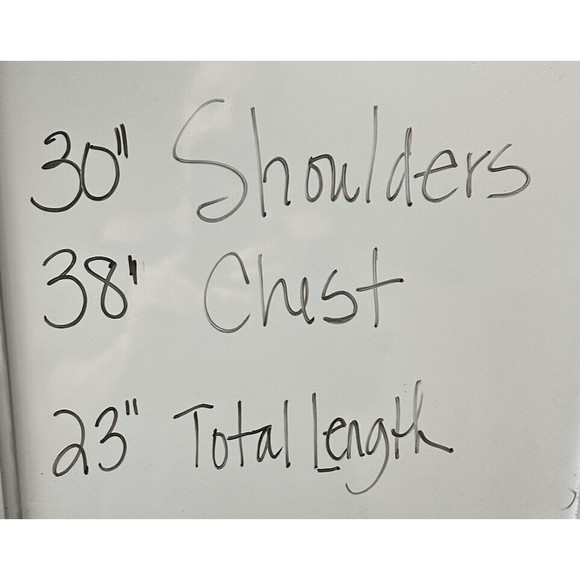 30" Shoulders
38" Chest
23" Total Length